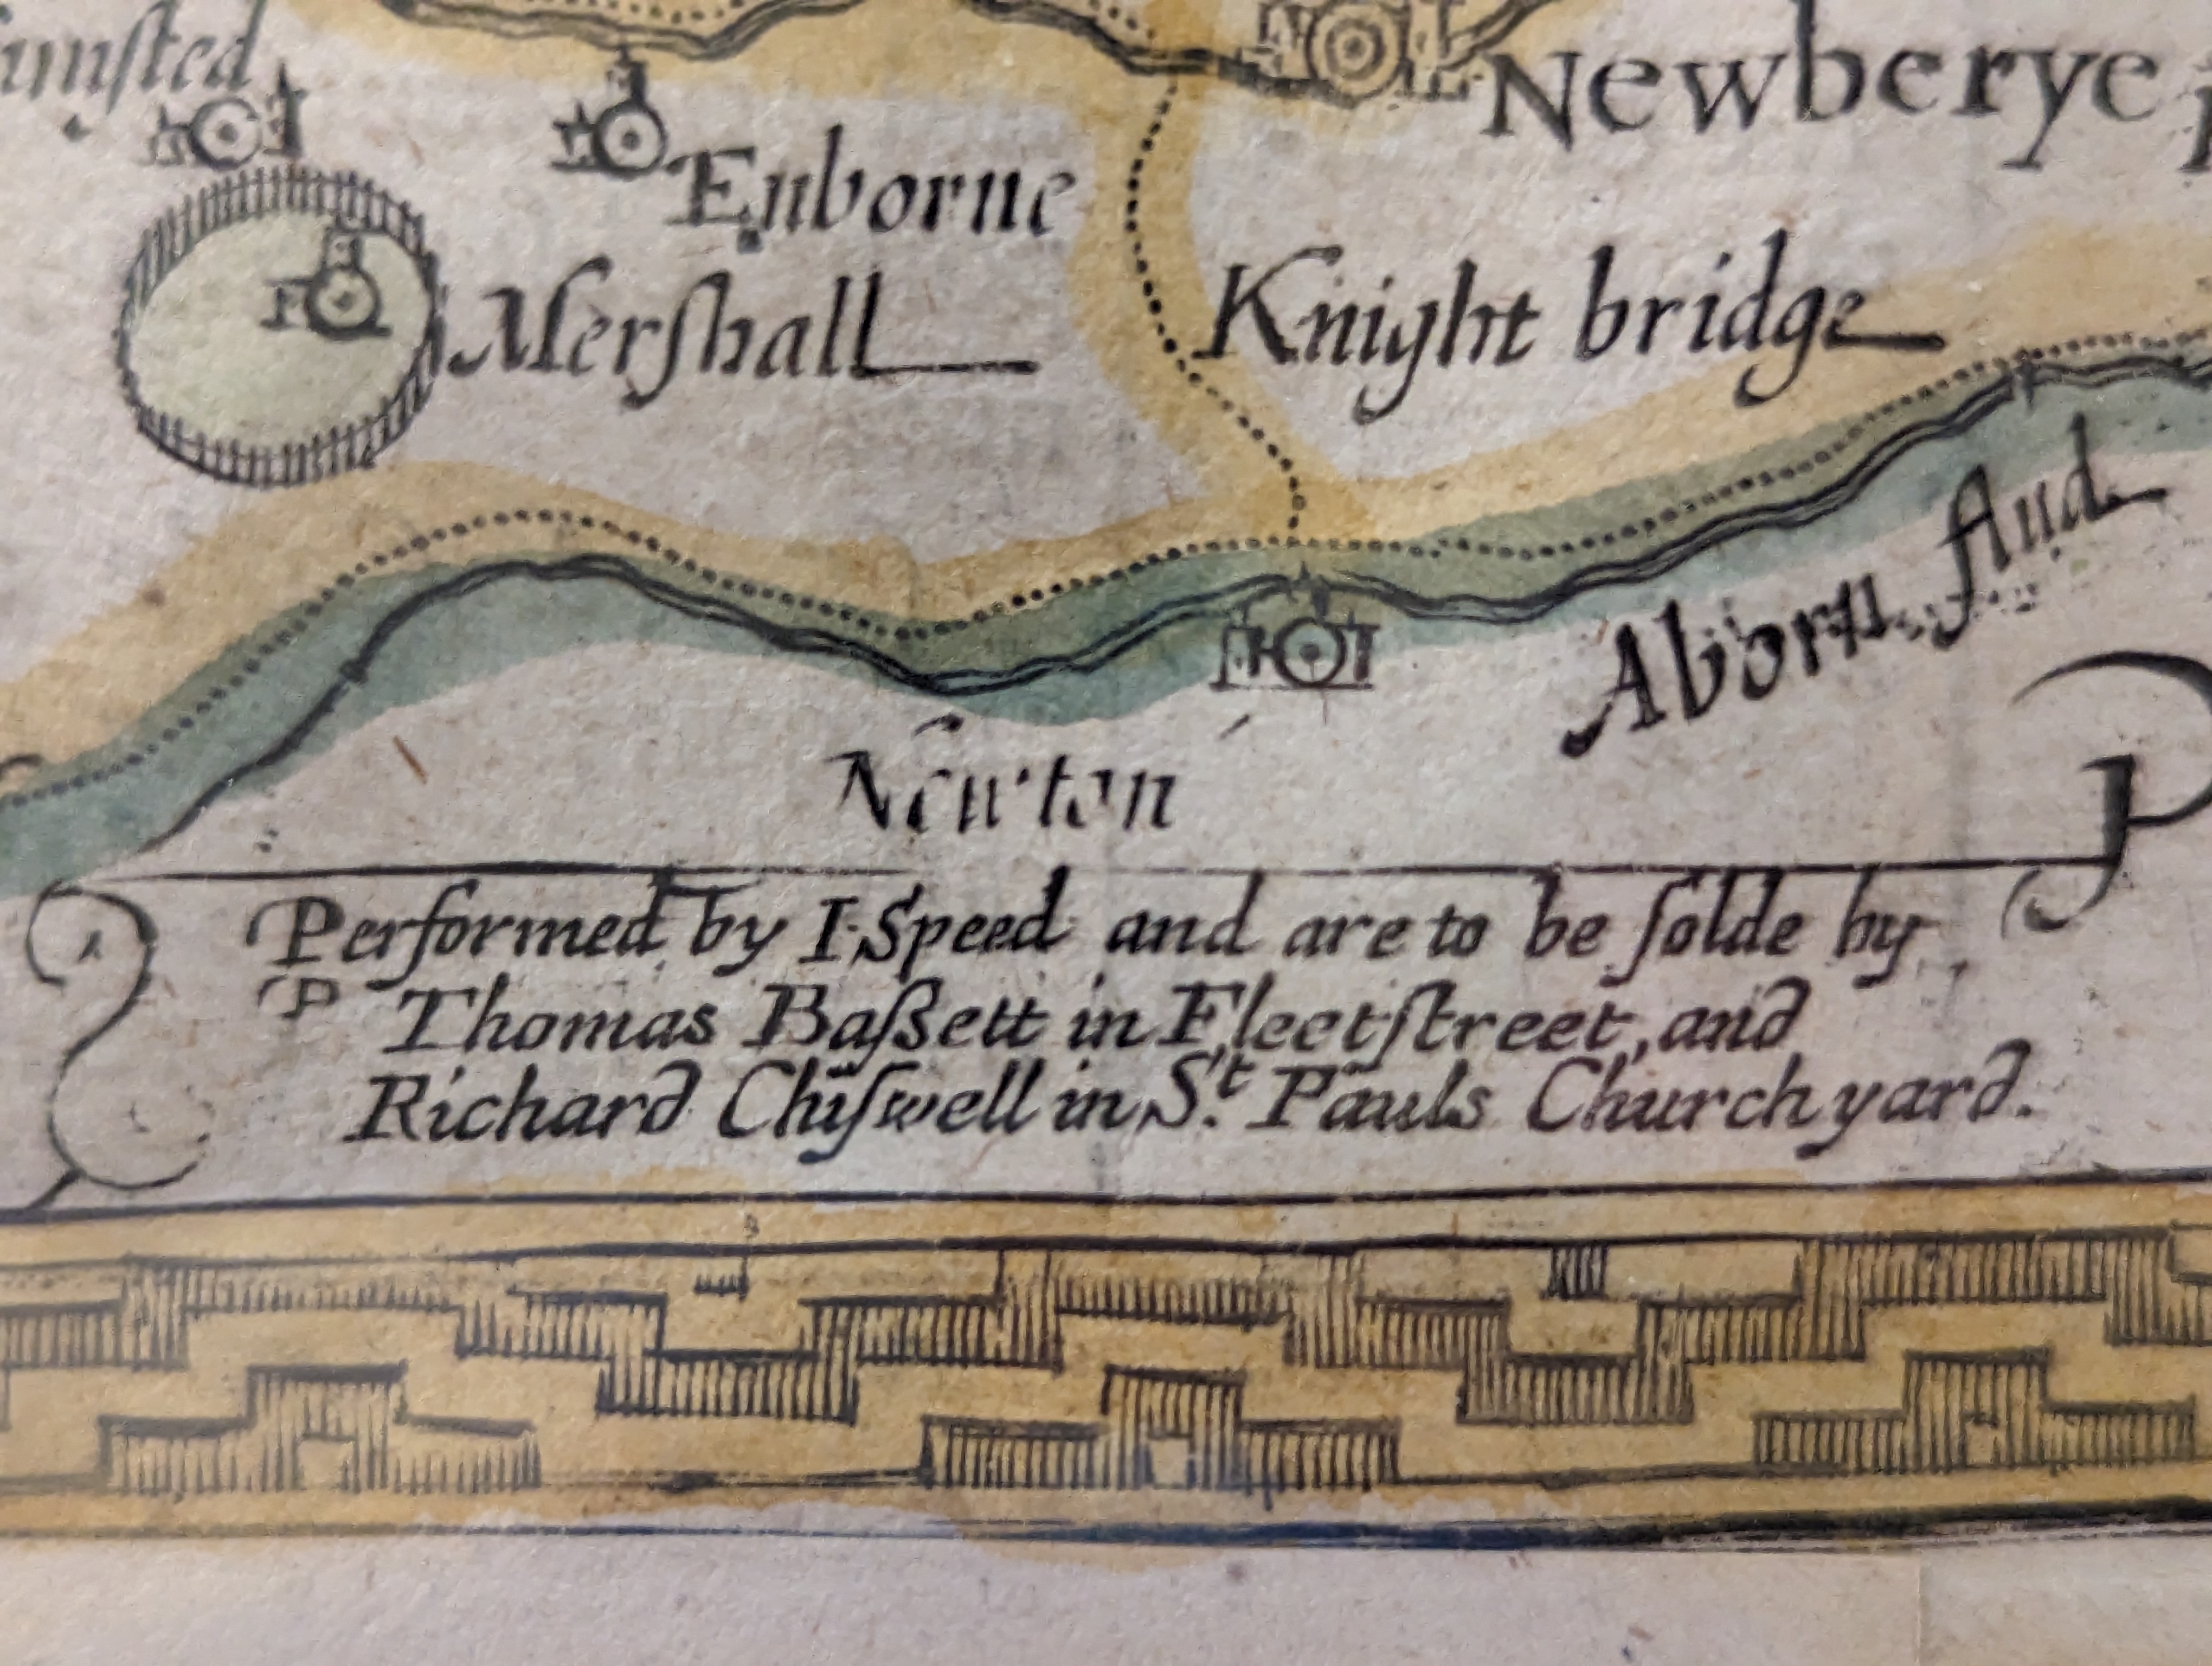 Newberye
Enborne
Merſhall
Knight bridge
Aborn flud
Newton
Performed by I. Speed and are to be ſolde by
Thomas Baßett in Fleetſtreet, and
Richard Chiſwell in S.t Pauls Church yard.